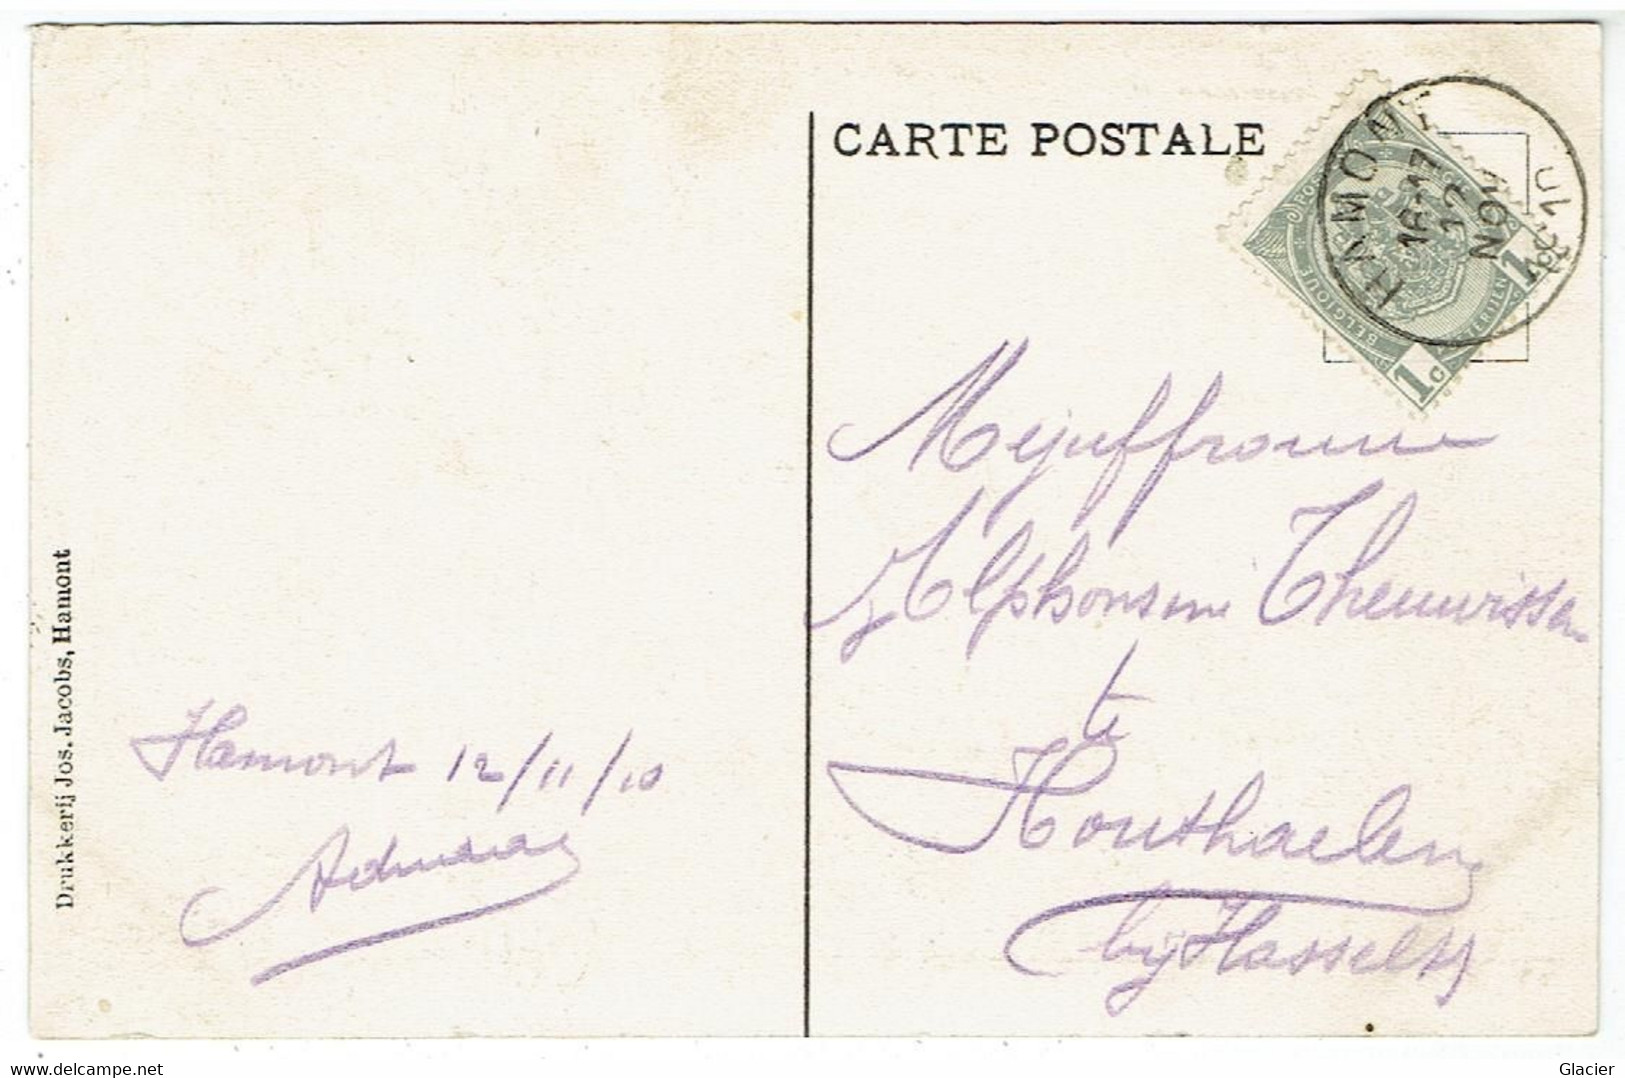 CARTE POSTALE
HAMONT
16-17
12
NOV
10
BELGIQUE
1c
1
Mejuffrouw
Alphonsine Theuwissen
te
Houthaelen
bij Hasselt
Hamont 12/11/10
Drukkerij Jos. Jacobs, Hamont
www.delcampe.net
Glacier